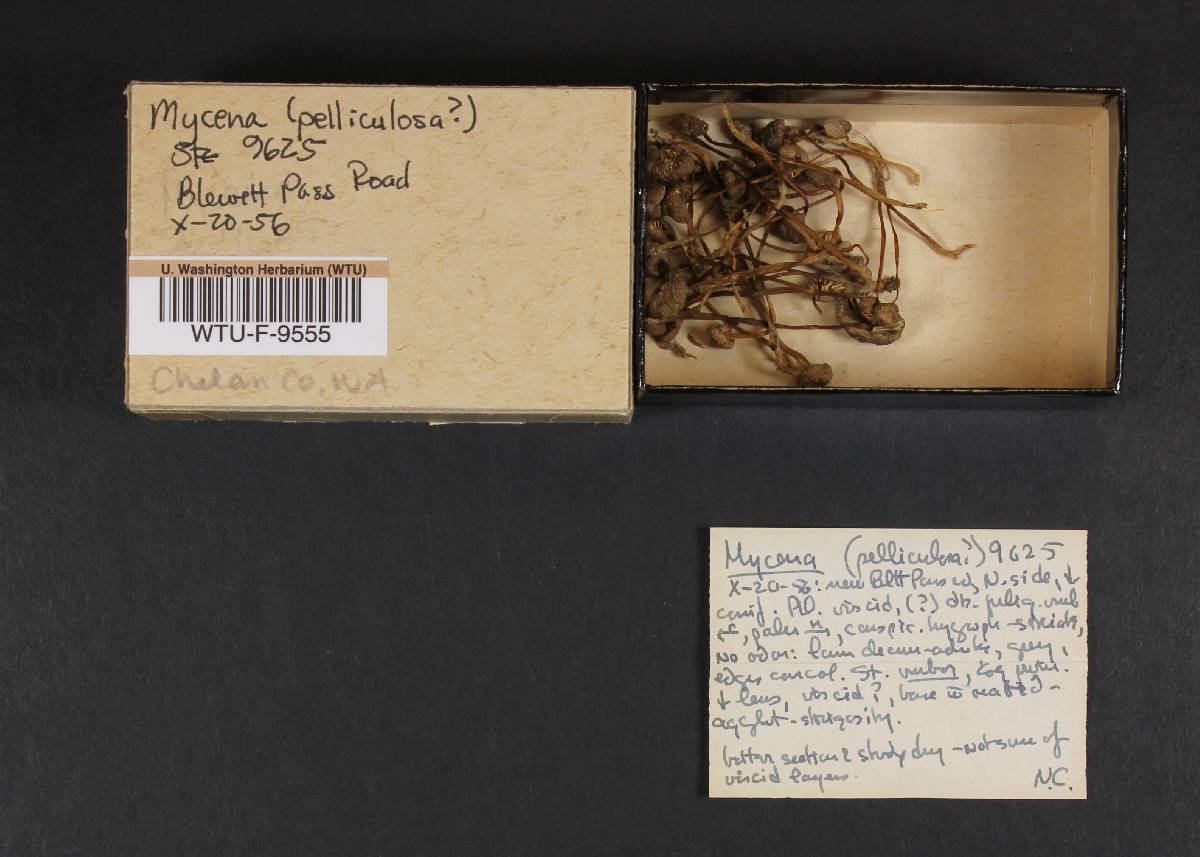 Mycena (pelliculosa?)
Stz 9625
Blewett Pass Road
X-20-56
U. Washington Herbarium (WTU)
WTU-F-9555
Chelan Co, WA
Mycena (pelliculosa?) 9625
X-20-56: new Pass N. side,
conif. Pil. viscid, (?) dk.
conspic. hygroph-striate,
No odor: lam decurr-adnate, grey,
edges concol. St.
viscid?, base matted-
agglut-strigosity.
better section & study dry - not sure of
viscid layers.
N.C.